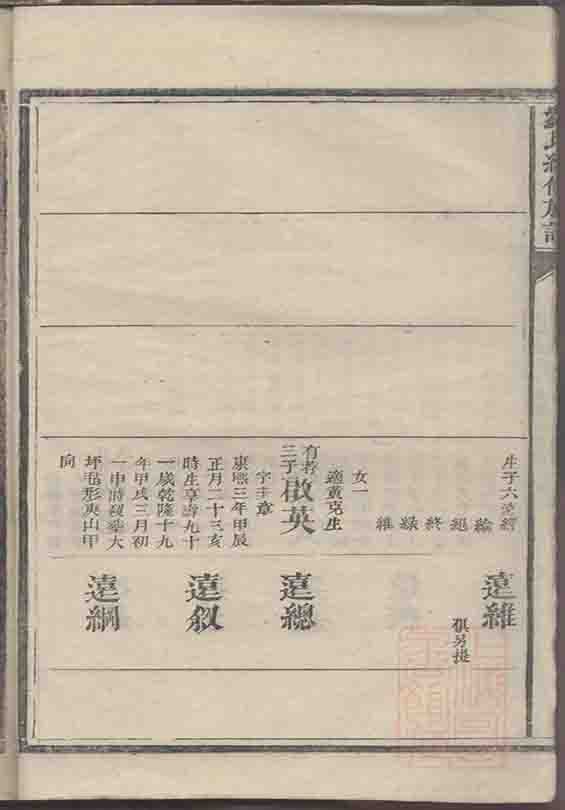 生子六遠經
綸
絕
終
緑
維
女一
適黃克生
有者
三子
啟英
字士章
康熙三年甲辰
正月二十三亥
時生享壽九十
一歲乾隆十九
年甲戌三月初
一申時歿葬大
坪形庚山甲
向
遠維
遠總
遠叙
遠綱